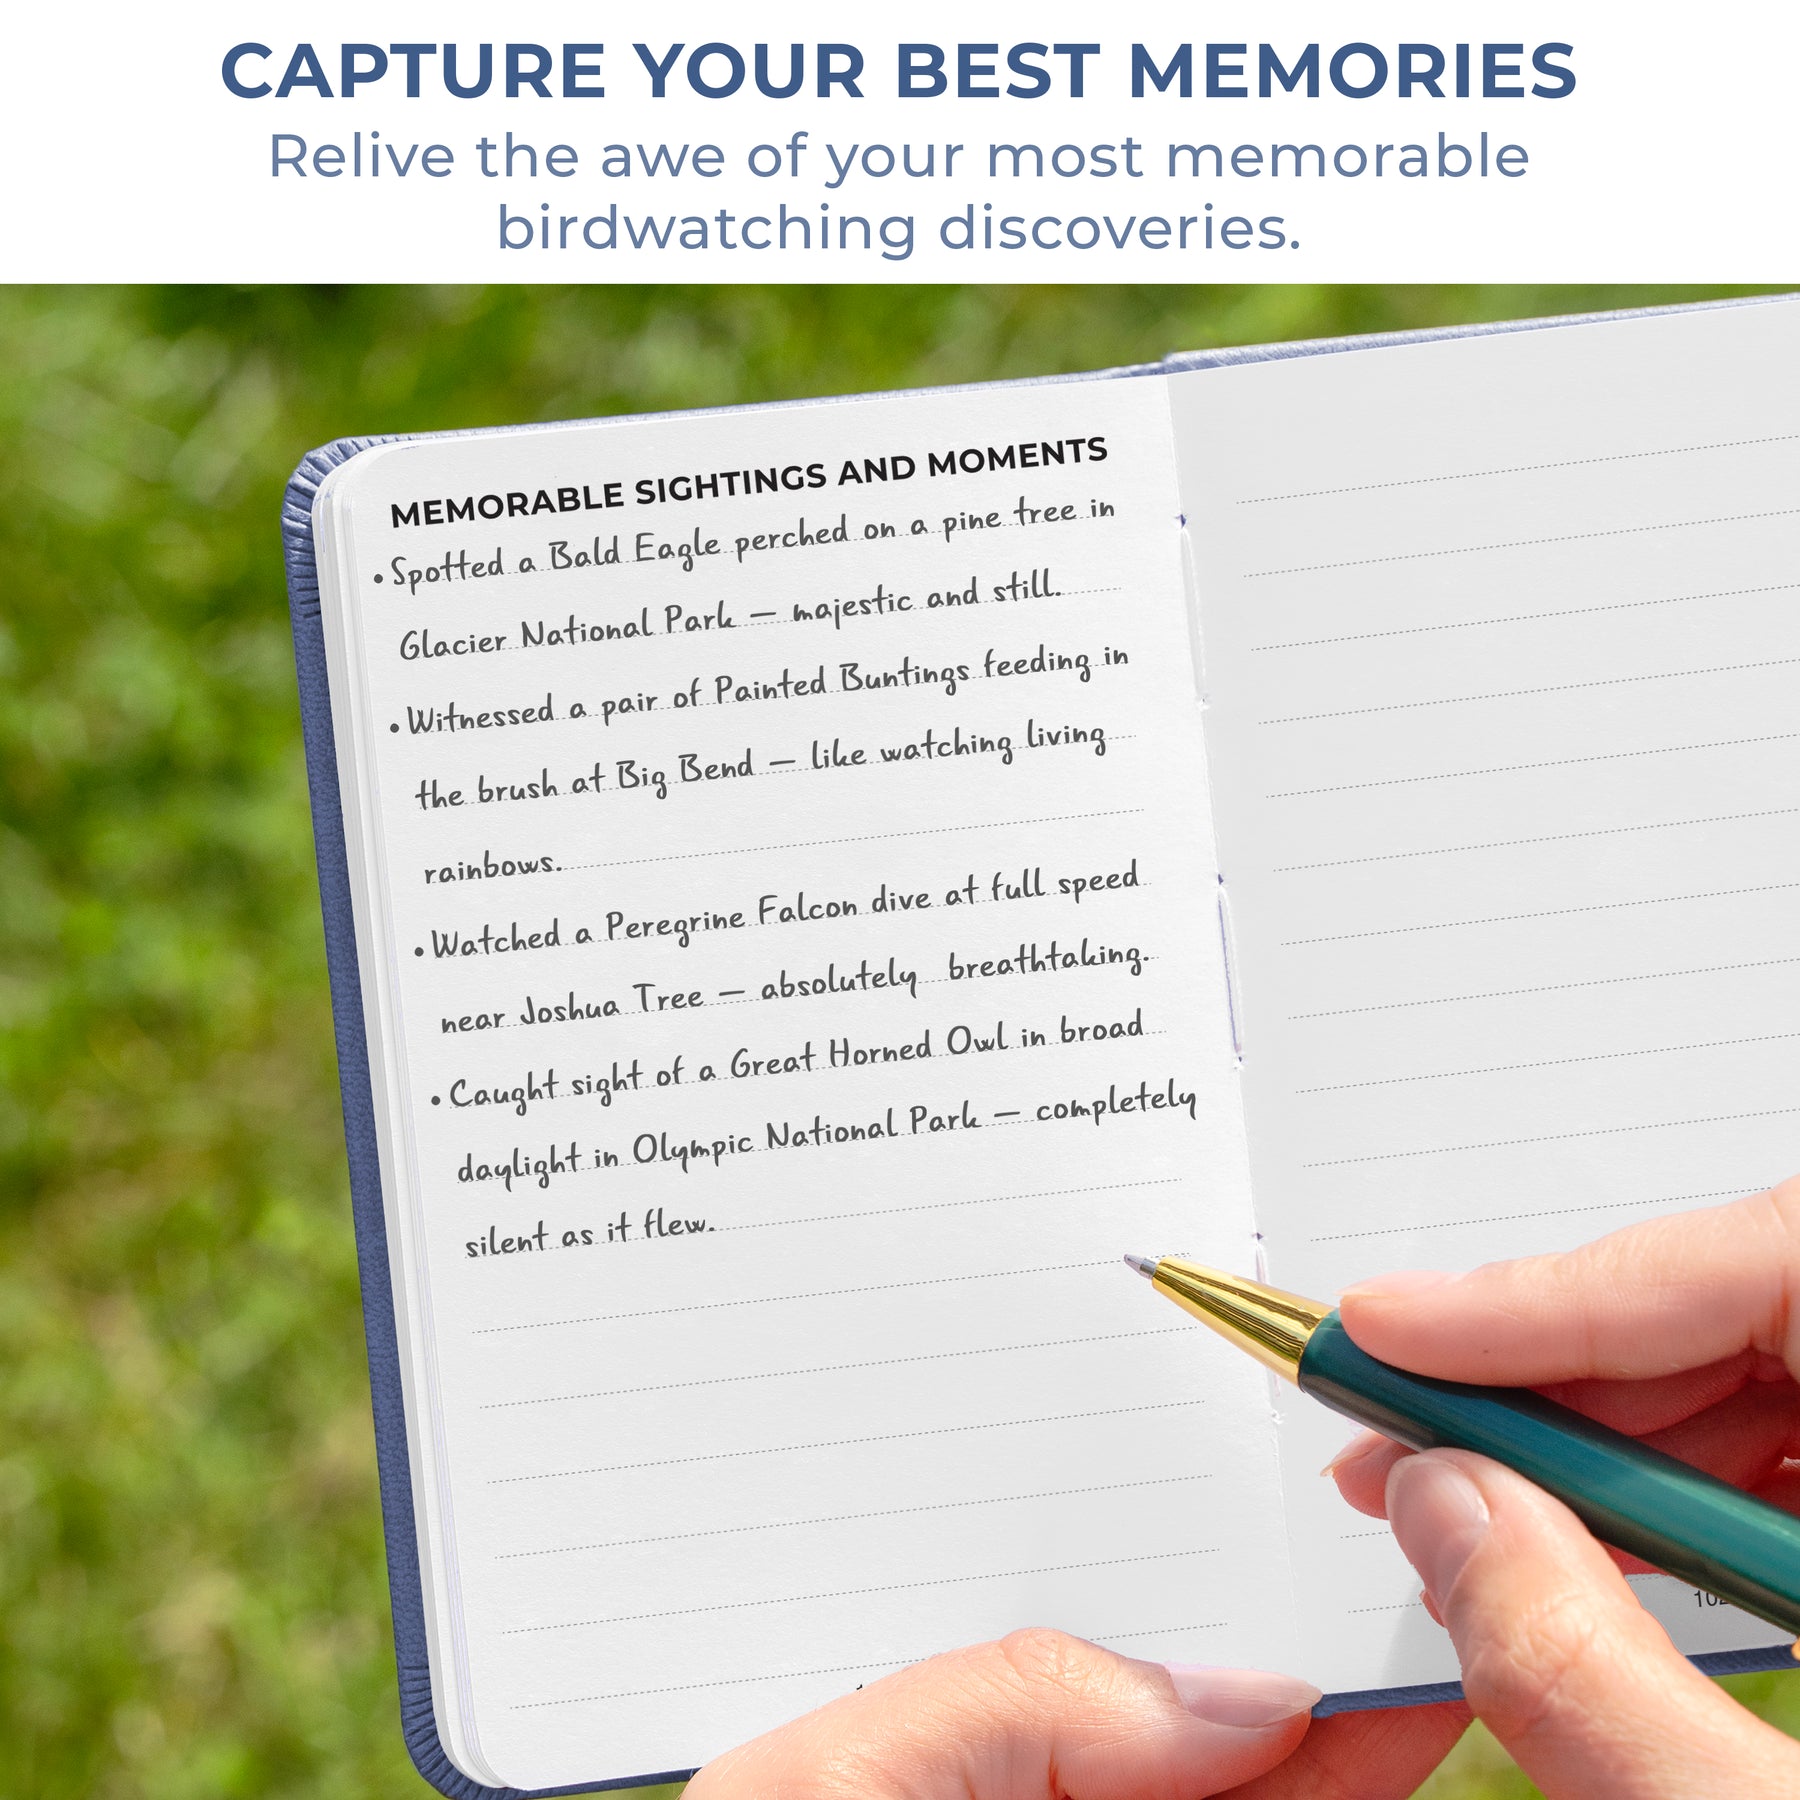 CAPTURE YOUR BEST MEMORIES
Relive the awe of your most memorable
birdwatching discoveries.
MEMORABLE SIGHTINGS AND MOMENTS
• Spotted a Bald Eagle perched on a pine tree in
Glacier National Park — majestic and still.
• Witnessed a pair of Painted Buntings feeding in
the brush at Big Bend — like watching living
rainbows.
• Watched a Peregrine Falcon dive at full speed
near Joshua Tree — absolutely breathtaking.
• Caught sight of a Great Horned Owl in broad
daylight in Olympic National Park — completely
silent as it flew.